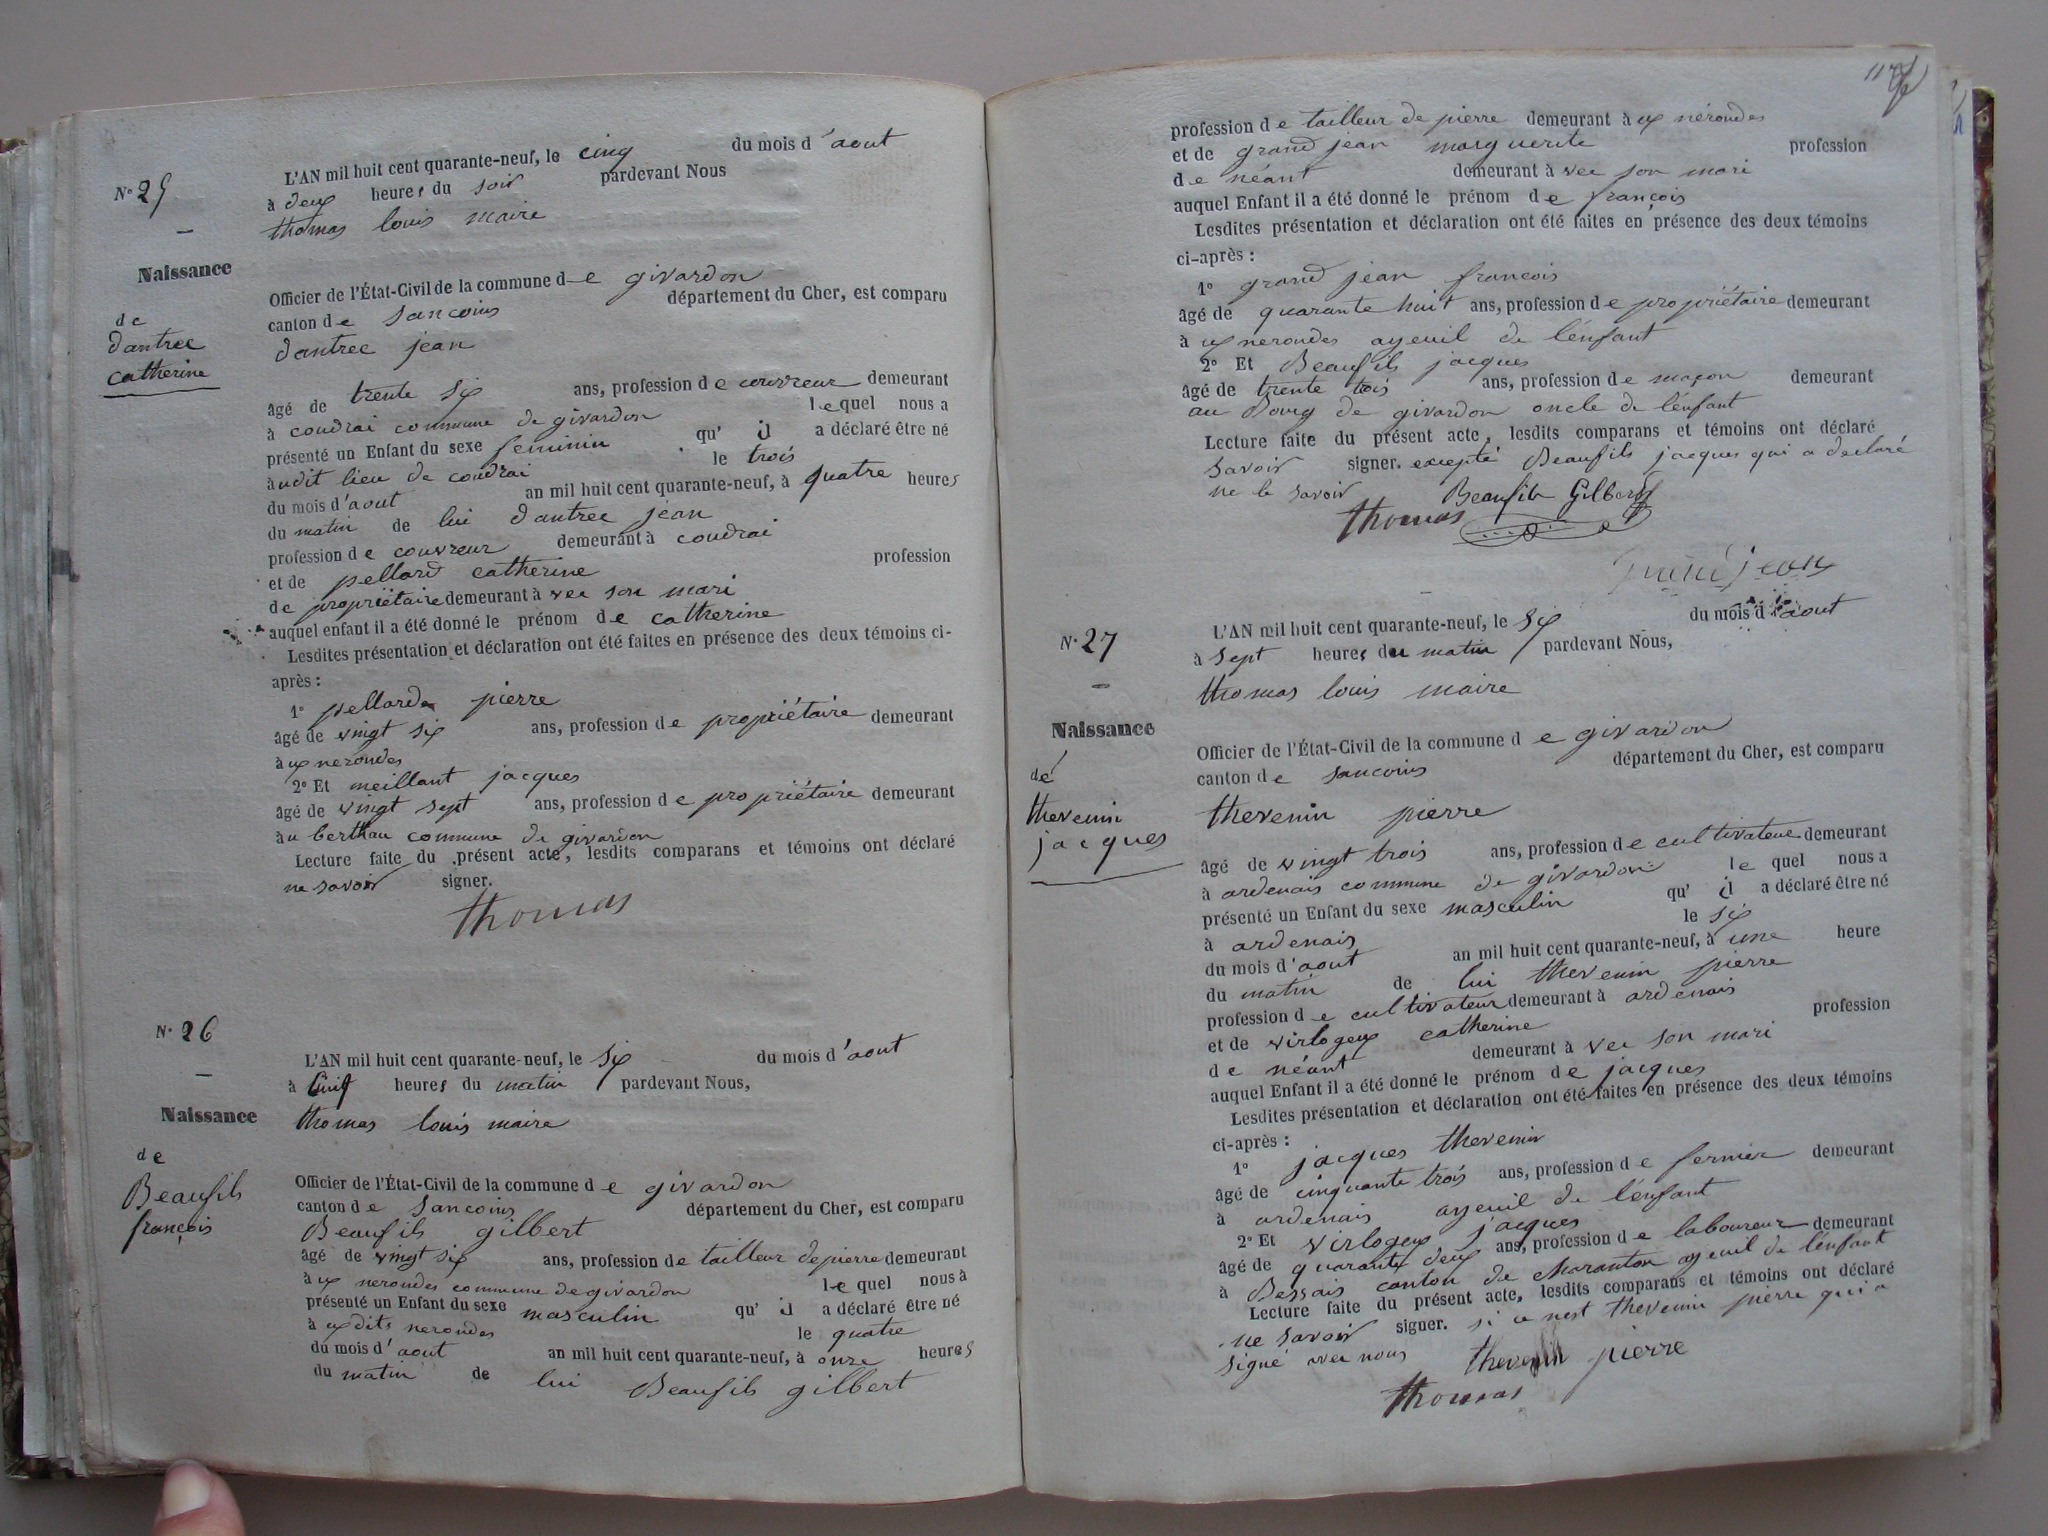 N° 25
Naissance
de
dantree
catherine
L'AN mil huit cent quarante-neuf, le cinq du mois d'aout
à deux heures du soir pardevant Nous
thomas louis maire
Officier de l'État-Civil de la commune de givardon
canton de sancoins département du Cher, est comparu
dantree jean
âgé de trente six ans, profession de couvreur demeurant
à coudrai commune de givardon lequel nous a
présenté un Enfant du sexe feminin qu' il a déclaré être né
audit lieu de coudrai le trois
du mois d'aout an mil huit cent quarante-neuf, à quatre heures
du matin de lui dantree jean
profession de couvreur demeurant à coudrai
et de pellard catherine profession
de propriétaire demeurant à vec son mari
auquel enfant il a été donné le prénom de catherine
Lesdites présentation et déclaration ont été faites en présence des deux témoins ci-
après :
1° pellard pierre
âgé de vingt six ans, profession de propriétaire demeurant
à ux nerondes
2° Et meillant jacques
âgé de vingt sept ans, profession de propriétaire demeurant
au berthau commune de givardon
Lecture faite du présent acte, lesdits comparans et témoins ont déclaré
ne savoir signer.
thomas
N° 26
Naissance
de
Beaufils
françois
L'AN mil huit cent quarante-neuf, le six du mois d'aout
à heures du matin pardevant Nous,
thomas louis maire
Officier de l'État-Civil de la commune de givardon
canton de Sancoins département du Cher, est comparu
Beaufils gilbert
âgé de vingt six ans, profession de tailleur de pierre demeurant
à ux nerondes commune de givardon lequel nous à
présenté un Enfant du sexe masculin qu' il a déclaré être né
à ux dits nerondes le quatre
du mois d'aout an mil huit cent quarante-neuf, à onze heures
du matin de lui Beaufils gilbert
117
profession de tailleur de pierre demeurant à ux nérondes
et de grand jean marguerite profession
de néant demeurant à vec son mari
auquel Enfant il a été donné le prénom de françois
Lesdites présentation et déclaration ont été faites en présence des deux témoins
ci-après :
1° grand jean francois
âgé de quarante huit ans, profession de propriétaire demeurant
à ux nerondes ayeuil de lénfant
2° Et Beaufils jacques
âgé de trente trois ans, profession de maçon demeurant
au Bourg de givardon oncle de lénfant
Lecture faite du présent acte, lesdits comparans et témoins ont déclaré
savoir signer. excepté Beaufils jacques qui a declaré
ne le savoir Beaufils Gilbert
thomas
grand jean
N° 27
Naissance
de
thevenin
jacques
L'AN mil huit cent quarante-neuf, le six du mois d'aout
à sept heures du matin pardevant Nous,
thomas louis maire
Officier de l'État-Civil de la commune de givardon
canton de sancoins département du Cher, est comparu
thevenin pierre
âgé de vingt trois ans, profession de cultivateur demeurant
à ardenais commune de givardon le quel nous a
présenté un Enfant du sexe masculin qu' il a déclaré être né
à ardenais le six
du mois d'aout an mil huit cent quarante-neuf, à une heure
du matin de lui thevenin pierre
profession de cultivateur demeurant à ardenais
et de virlogeux catherine profession
de néant demeurant à vec son mari
auquel Enfant il a été donné le prénom de jacques
Lesdites présentation et déclaration ont été faites en présence des deux témoins
ci-après :
1° jacques thevenin
âgé de cinquante trois ans, profession de fermier demeurant
à ardenais ayeuil de lénfant
2° Et virlogeux jacques
âgé de quarante deux ans, profession de laboureur demeurant
à Bessais canton de charanton ayeuil de lénfant
Lecture faite du présent acte, lesdits comparans et témoins ont déclaré
ne savoir signer. si ce nest thevenin pierre qui a
signé avec nous thevenin pierre
thomas